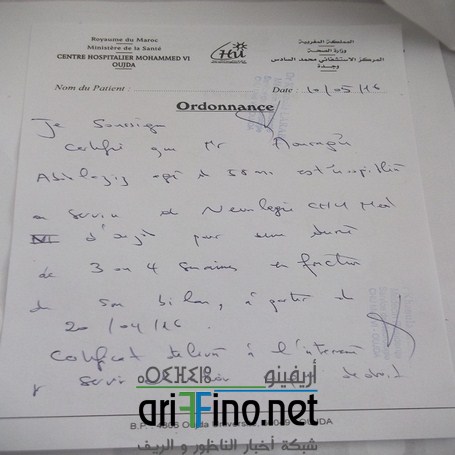 Royaume du Maroc
Ministère de la Santé
CENTRE HOSPITALIER MOHAMMED VI
OUJDA
المملكة المغربية
وزارة الصحة
المركز الاستشفائي محمد السادس
وجدة
Nom du Patient :
Date : 10/05/16
Ordonnance
Je soussigné
certifie que Mr
âgé de 58 ans est hospitalisé
au service de Neurologie CHU Med
VI d'oujda pour une durée
de 3 ou 4 semaines en fonction
de son bilan, à partir de
20/04/16.
Certificat délivré à l'intéressé
servir de droit
ⴰⵔⵉⴼⵉⵏⵓ أريفينو
ariffino.net
B.P. : 4806 Oujda Université, OUJDA
شبكة أخبار الناظور و الريف